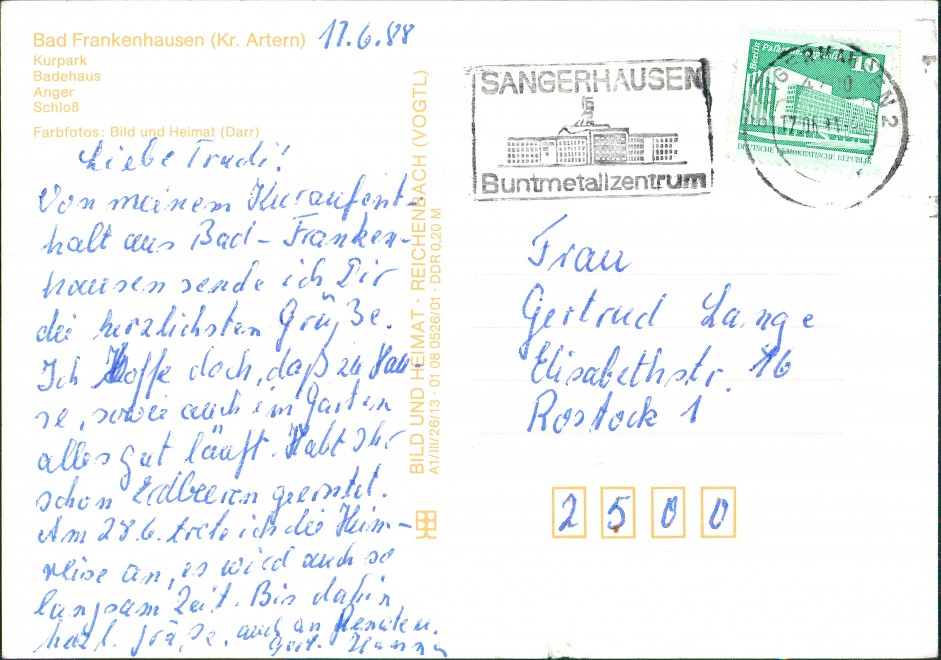 Bad Frankenhausen (Kr. Artern) 17.6.88
Kurpark
Badehaus
Anger
Schloß
Farbfotos: Bild und Heimat (Darr)
Liebe Trudi!
Von meinem Kuraufent-
halt aus Bad-Franken-
hausen sende ich Dir
die herzlichsten Grüße.
Ich hoffe doch, daß zu Hau
se, sowie auch im Garten
alles gut läuft. Habt Ihr
schon Erdbeeren geerntet.
Am 28.6. trete ich die Heim-
reise an, es wird auch so
langsam Zeit. Bis dahin
herzl. Grüße, auch an
Hanna
BILD UND HEIMAT · REICHENBACH (VOGTL)
A1/III/26/13 · 01 08 0526/01 · DDR 0,20 M
SANGERHAUSEN
Buntmetallzentrum
Berlin
DEUTSCHE DEMOKRATISCHE REPUBLIK
SANGERHAUSEN 2
Frau
Gertrud Lange
Elisabethstr. 16
Rostock 1
2500